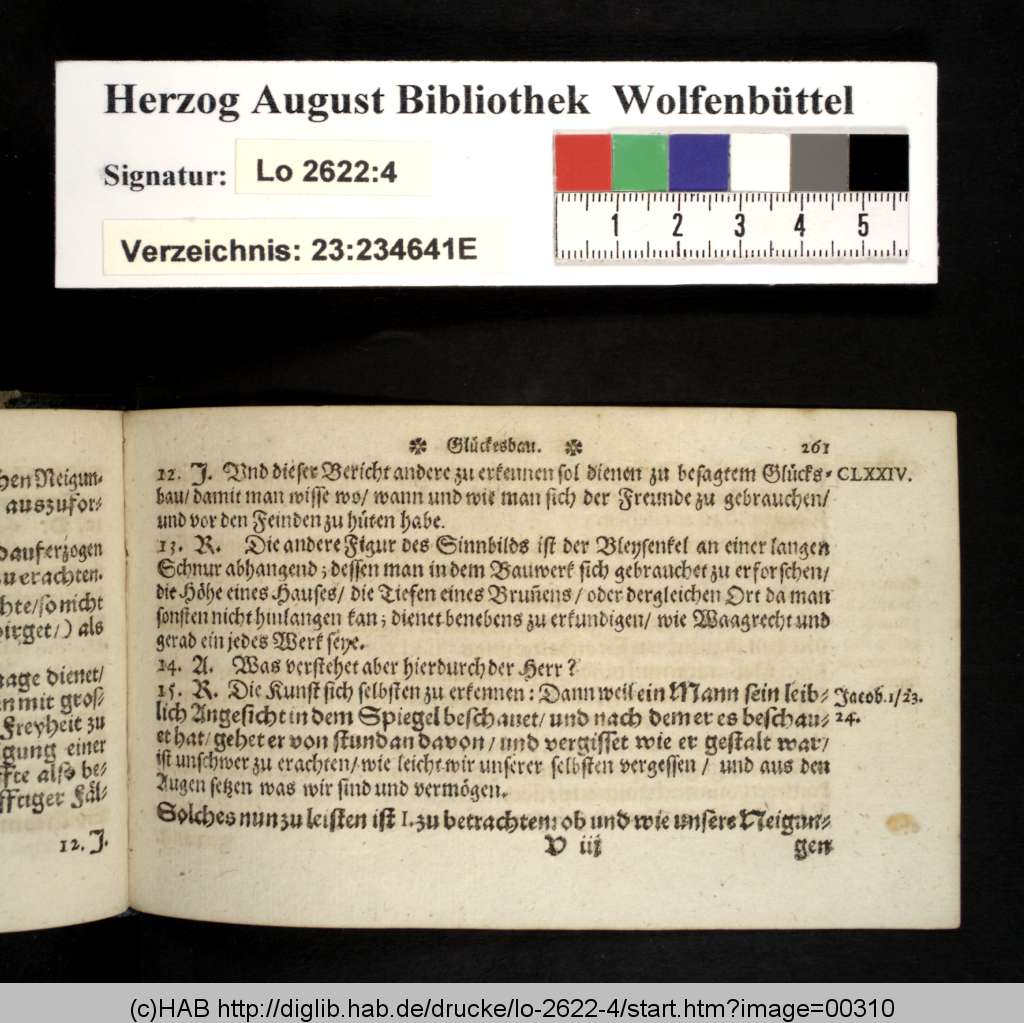 Herzog August Bibliothek Wolfenbüttel
Signatur: Lo 2622:4
Verzeichnis: 23:234641E
1 2 3 4 5
chen Neigun-
auszufor-
auferzogen
zu erachten.
/so nicht
birget/) als
dienet/
mit gros-
Freyheit zu
gung einer
also be-
Fäl-
12. J.
✽ Glückesbau. ✽ 261
12. J. Vnd dieser Bericht andere zu erkennen sol dienen zu besagtem Glücks- CLXXIV.
bau/ damit man wisse wo/ wann und wie man sich der Freunde zu gebrauchen/
und vor den Feinden zu hüten habe.
13. R. Die andere Figur des Sinnbilds ist der Bleysenkel an einer langen
Schnur abhangend; dessen man in dem Bauwerk sich gebrauchet zu erforschen/
die Höhe eines Hauses/ die Tiefen eines Bruñens/ oder dergleichen Ort da man
sonsten nicht hinlangen kan; dienet benebens zu erkundigen/ wie Waagrecht und
gerad ein jedes Werk seye.
14. A. Was verstehet aber hierdurch der Herr?
15. R. Die Kunst sich selbsten zu erkennen: Dann weil ein Mann sein leib- Jacob. 1/23.
lich Angesicht in dem Spiegel beschauet/ und nach dem er es beschau- 24.
et hat/ gehet er von stund an davon/ und vergisset wie er gestalt war/
ist unschwer zu erachten/ wie leicht wir unserer selbsten vergessen/ und aus den
Augen setzen was wir sind und vermögen.
Solches nun zu leisten ist I. zu betrachten: ob und wie unsere Neigun-
V iij gen
(c)HAB http://diglib.hab.de/drucke/lo-2622-4/start.htm?image=00310